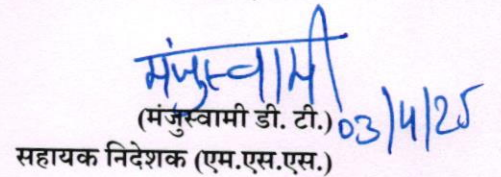 मंजुस्वामी
(मंजुस्वामी डी. टी.) 03/4/25
सहायक निदेशक (एम.एस.एस.)